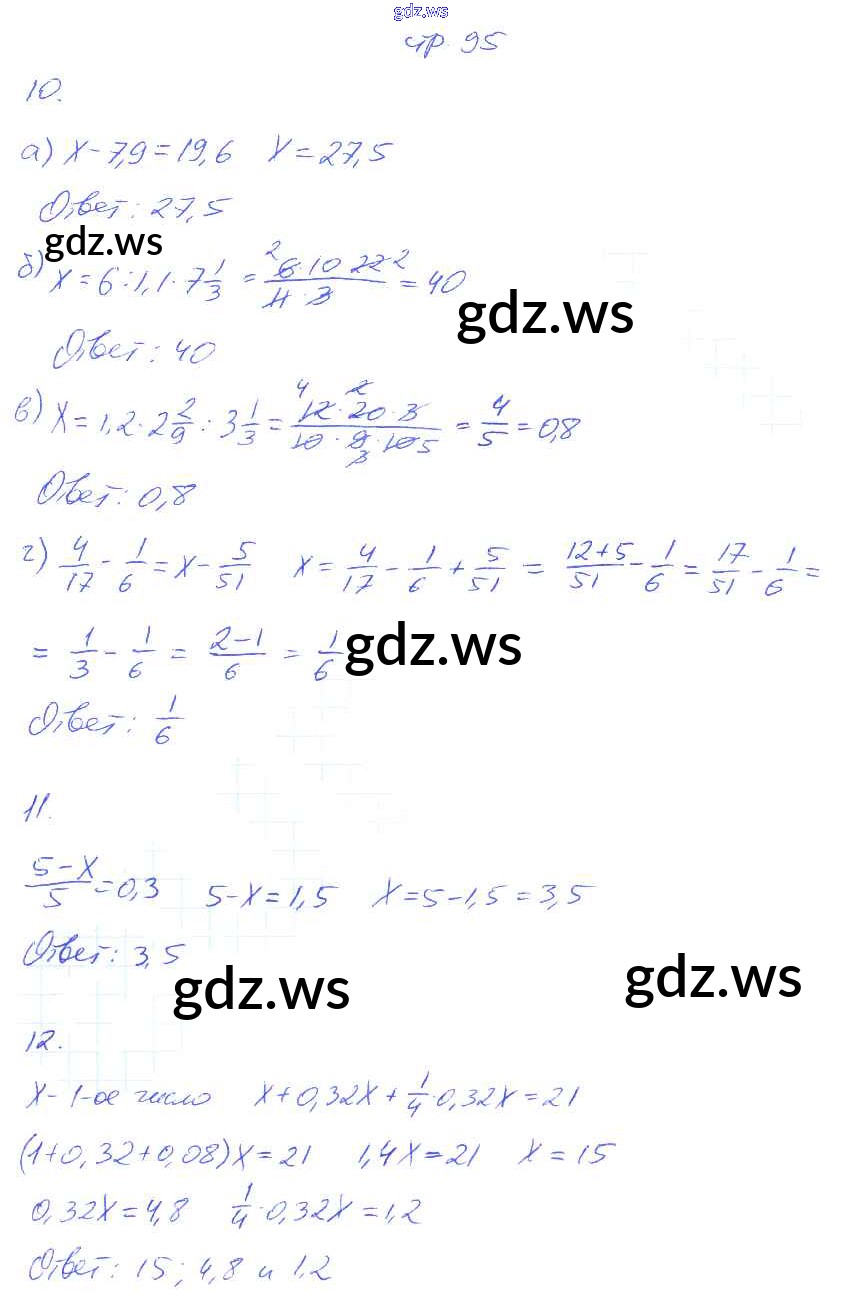 gdz.ws
стр. 95
10.
а) x - 7,9 = 19,6   x = 27,5
Ответ: 27,5
gdz.ws
б) x = 6 : 1,1 · 7 1/3 = (6 · 10 · 22)/(11 · 3) 2 2 = 40
gdz.ws
Ответ: 40
в) x = 1,2 · 2 2/9 : 3 1/3 = (12 · 20 · 3)/(10 · 9 · 10) 4 2 3 5 = 4/5 = 0,8
Ответ: 0,8
г) 4/17 - 1/6 = x - 5/51   x = 4/17 - 1/6 + 5/51 = (12+5)/51 - 1/6 = 17/51 - 1/6 =
= 1/3 - 1/6 = (2-1)/6 = 1/6
gdz.ws
Ответ: 1/6
11.
(5-x)/5 = 0,3   5 - x = 1,5   x = 5 - 1,5 = 3,5
Ответ: 3,5
gdz.ws
gdz.ws
12.
x - 1-ое число   x + 0,32x + 1/4 · 0,32x = 21
(1 + 0,32 + 0,08)x = 21   1,4x = 21   x = 15
0,32x = 4,8   1/4 · 0,32x = 1,2
Ответ: 15; 4,8 и 1,2